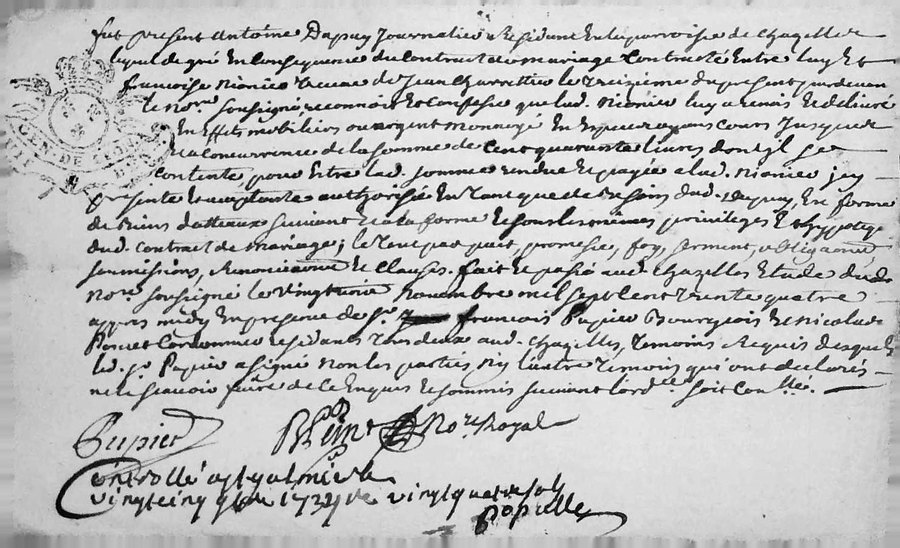 fut present Antoine Dupuy Journalier Residant en la parroisse de Chazelles
lequel de gré en Consequence du Contract de mariage Contracté Entre luy Et
francoise Nionier veuve de Jean Charrettier le Treizieme du present pardevant
le Nore soussigné, reconnoit Et Confesse que lad. Nionier luy a remis Et delivré
En Effets mobiliers ou argent monnoyé En Especes ayans Cours Jusques
Et a Concurrence de la somme de Cent quarante livres dont Jl se
Contente, pour Estre lad. somme rendue Et payée a lad. Nionier jcy
presente Et acceptante authorisée En Tant que de Besoin dud. Dupuy, En forme
de Biens dotteaux suivant Et a la forme Et sous les mêmes privileges Et hyppoteq
dud. Contract de mariage; le Tout par pact, promesse, foy, serment, obligaons
soumissions, Renonciaons Et Clauses. fait Et passé aud. Chazelles Etude dud.
Nore soussigné le vingtunie Novembre mil sept Cent Trente quatre
appres midy En presence de sr francois Pupier Bourgeois Et Nicolas
Cordonnier residants Tous deux aud. Chazelles, Temoins Requis desquels
led. sr Pupier a signé non les parties Ny lautre Temoins qui ont declarés
ne le scavoir faire de Ce Enquis Et sommis suivant lord.ce soit Con.llé.
Pupier
Nore Royal
Controllé a St galmier le
vingt cinq 9bre 1734 vingt quatre sols